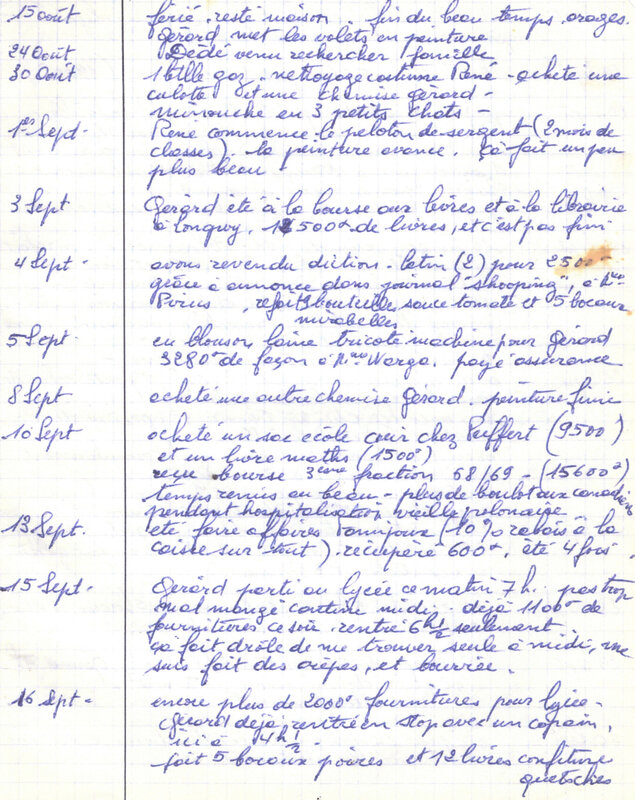 15 août férié, resté maison. fin du beau temps, orages.
Gérard met les volets en peinture
24 Août Dédé venu rechercher famille
30 Août 1 btlle gaz. nettoyage costume René - acheté une
culotte et une chemise Gérard -
minouche eu 3 petits chats -
1er Sept - René commence le peloton de sergent (2 mois de
classes). la peinture avance. çà fait un peu
plus beau -
3 Sept Gérard été à la bourse aux livres et à la librairie
à Longwy. 12500 de livres, et c'est pas fini
4 Sept - avons revendu diction. latin (2) pour 2500
grâce à annonce dans journal "shopping", à Mme
refait 3 bouteilles sauce tomate et 5 bocaux
mirabelles
5 Sept - eu blouson laine tricoté machine pour Gérard
3280 de façon à Mme Warga. payé assurance
8 Sept acheté une autre chemise Gérard. peinture finie
10 Sept acheté un sac école cuir chez Peiffert (9500)
et un livre maths (1500)
reçu bourse 3eme fraction 68/69 - (15600)
temps remis au beau - plus de boulot aux
pendant hospitalisation vieille polonaise
13 Sept. été faire affaires (10% rabais à la
caisse sur tout). récupéré 600, été 4 fois -
15 Sept - Gérard parti au lycée ce matin 7h. pas trop
mal mangé cantine midi. déjà 1100 de
fournitures ce soir. rentré 6h 1/2 seulement.
çà fait drôle de me trouver seule à midi, me
suis fait des crêpes, et bourrée.
16 Sept - encore plus de 2000 fournitures pour lycée -
Gérard déjà rentré en stop avec un copain,
ici à 4h 1/2
fait 5 bocaux poires et 12 livres confiture
quetsches